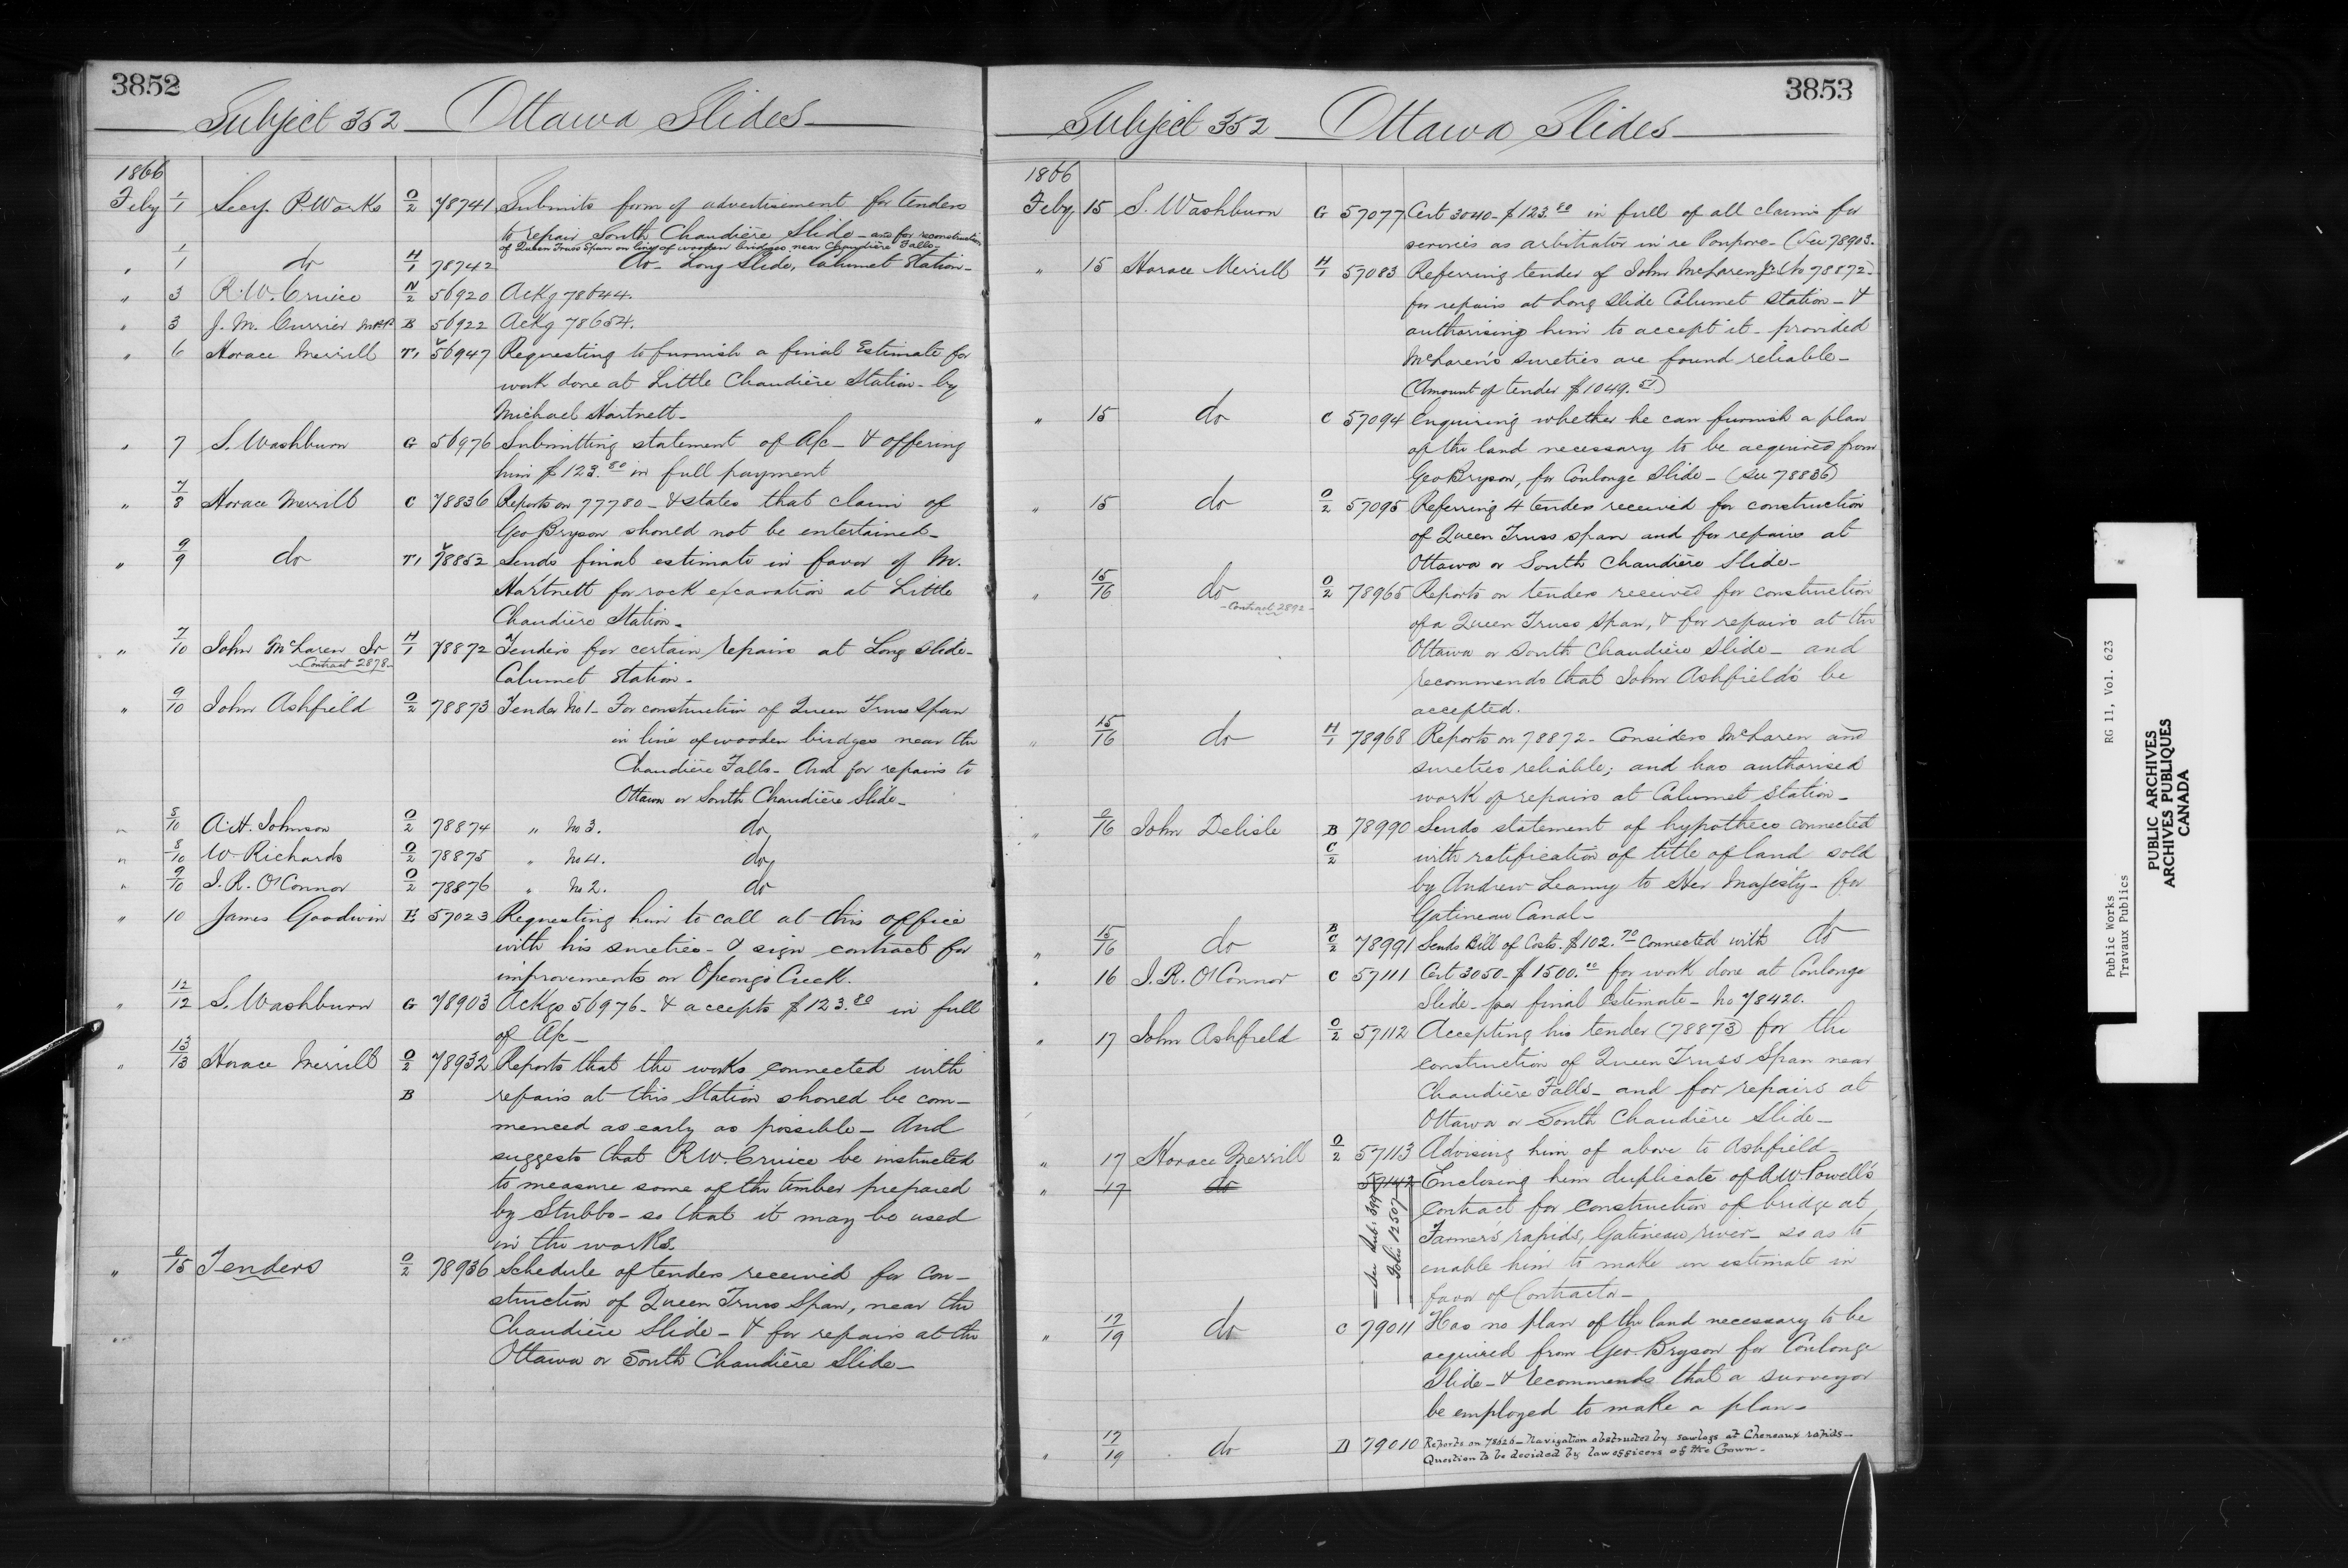 3852
Subject 352 _ Ottawa Slides _
1866
Feby 1/1 Secy. P. Works O/2 78741 Submits form of advertisement for tenders
to repair South Chaudière Slide _ and for reconstruction
of Queen Truss Span on line of wooden bridges near Chaudière Falls _
" 1/1 do H/1 78742 do _ Long Slide, Calumet Station _
" 3 R. W. Cruice N/2 56920 Ackg 78644.
" 3 J. M. Currier M.P.P. B 56922 Ackg 78654.
" 6 Horace Merrill T1 56947 Requesting to furnish a final Estimate for
work done at Little Chaudière Station _ by
Michael Hartnett _
" 7 S. Washburn G 56976 Submitting statement of A/c _ & offering
him $123.80 in full payment
" 7/8 Horace Merrill C 78836 Reports on 77780 _ & states that claim of
Geo Bryson should not be entertained _
" 9/9 do T1 78852 Sends final estimate in favor of M.
Hartnett for rock excavation at Little
Chaudière Station _
" 7/10 John McLaren Jr H/1 78872 Tenders for certain repairs at Long Slide _
_ Contract 2878 _
Calumet Station _
" 9/10 John Ashfield O/2 78873 Tender No 1 _ For construction of Queen Truss Span
in line of wooden bridges near the
Chaudière Falls _ And for repairs to
Ottawa or South Chaudière Slide _
" 8/10 A. H. Johnson O/2 78874 " No 3. do
" 8/10 W. Richards O/2 78875 " No 4. do
" 9/10 J. R. O'Connor O/2 78876 " No 2. do
" 10 James Goodwin E 57023 Requesting him to call at this office
with his sureties _ & sign contract for
improvements on Opeongo Creek.
" 12/12 S. Washburn G 78903 Ackgs 56976 _ & accepts $123.80 in full
of A/c _
" 13/13 Horace Merrill O/2 78932 Reports that the works connected with
B repairs at this Station shoned be com_
menced as early as possible _ And
suggests that R W. Cruice be instructed
to measure some of the timber prepared
by Stubbs _ so that it may be used
in the works.
" /15 Tenders O/2 78936 Schedule of tenders received for Con_
struction of Queen Truss Span, near the
Chaudière Slide _ & for repairs at the
Ottawa or South Chaudière Slide _
3853
Subject 352 _ Ottawa Slides _
1866
Feby 15 S. Washburn G 57077 Cert 3040 _ $123.80 in full of all claims for
services as arbitrator in re Poupore _ (See 78903.
" 15 Horace Merrill H/1 57083 Referring tender of John McLaren Jr (No 78872 _
for repairs at Long Slide Calumet Station _ &
authorising him to accept it _ provided
McLaren's sureties are found reliable _
(Amount of tender $1049.)
" 15 do C 57094 Enquiring whether he can furnish a plan
of the land necessary to be acquired from
Geo Bryson, for Coulonge Slide _ (See 78836)
" 15 do O/2 57095 Referring 4 tenders received for construction
of Queen Truss span and for repairs at
Ottawa or South Chaudière Slide _
" 15/16 do O/2 78965 Reports on tenders received for construction
_ Contract 2892 _
of a Queen Truss Span, & for repairs at the
Ottawa or South Chaudière Slide _ and
recommends that John Ashfield's be
accepted.
" 15/16 do H/1 78968 Reports on 78872 _ Considers McLaren and
sureties reliable; and has authorised
work of repairs at Calumet Station _
" /16 John Delisle B 78990 Sends statement of hypothecs connected
C/2 with ratification of title of land sold
by Andrew Leamy to Her Majesty _ for
Gatineau Canal _
" 15/16 do B C/2 78991 Sends Bill of Costs. $102.70 Connected with do
" 16 J. R. O'Connor C 57111 Cert 3050 _ $1500.00 for work done at Coulonge
Slide _ per final Estimate _ No 78420.
" 17 John Ashfield O/2 57112 Accepting his tender (78873) for the
construction of Queen Truss Span near
Chaudière Falls _ and for repairs at
Ottawa or South Chaudière Slide _
" 17 Horace Merrill O/2 57113 Advising him of above to Ashfield _
" 17 do 57142 Enclosing him duplicate of A W. Powell's
contract for construction of bridge at
Farmer's rapids, Gatineau river _ so as to
enable him to make an estimate in
favor of Contractor _
_ See Sub: 399
Folio 12507
" 17/19 do C 79011 Has no plan of the land necessary to be
acquired from Geo. Bryson for Coulonge
Slide _ & recommends that a surveyor
be employed to make a plan _
" 17/19 do D 79010 Reports on 78626 _ Navigation obstructed by sawlogs at Cheneaux rapids _
Question to be decided by law officers of the Crown _
Public Works RG 11, Vol. 623
Travaux Publics
PUBLIC ARCHIVES
ARCHIVES PUBLIQUES
CANADA